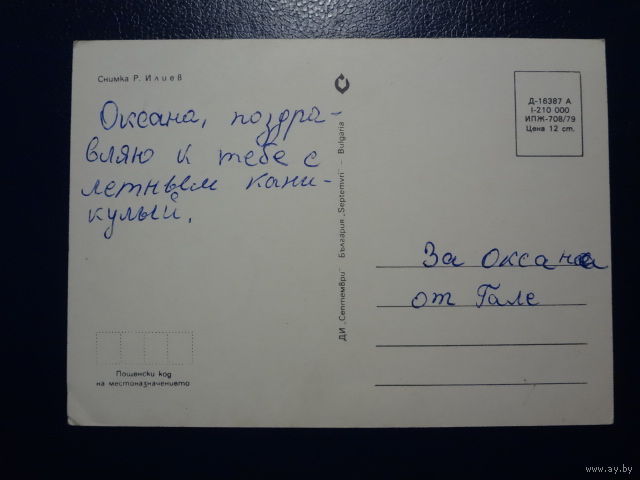 Снимка Р. Илиев
Оксана, поздра-
вляю к тебе с
летнвем кани-
кулый.
Пощенски код
на местоназначението
ДИ „Септември" България „Septemvri" - Bulgaria
Д-16387 А
I-210 000
ИПЖ-708/79
Цена 12 ст.
За Оксана
от Гале
www.ay.by